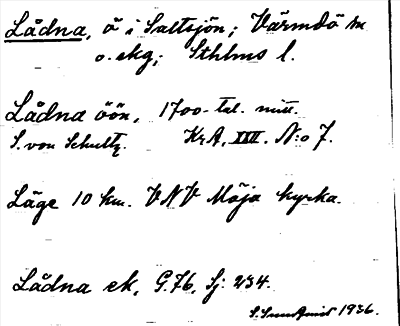 Lådna, ö i Saltsjön; Värmdö sn
o. skg; Sthlms l.
Lådna öön, 1700-tal. mitt.
S. von Schultz. KrA, XIII. N:o 7.
Läge 10 km. VNV Möja kyrka.
Lådna ek. G.76, Sj: 234.
1936.